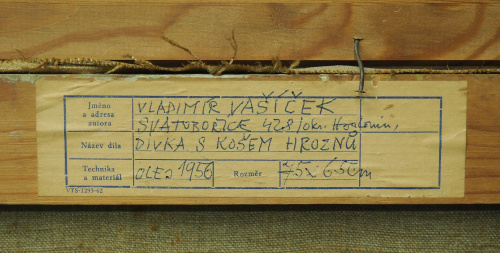 Jméno a adresa autora VLADIMÍR VAŠÍČEK
SVATOBOŘICE 428/okr. Hodonín,
Název díla DÍVKA S KOŠEM HROZNŮ
Technika a materiál OLEJ 1956 Rozměr 75x65cm
VTS-1293-62